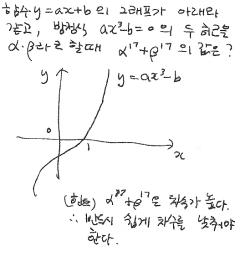 함수 y=ax+b 의 그래프가 아래와
같고, 방정식 ax³-b=0 의 두 허근을
α·β라고 할때 α¹⁷+β¹⁷의 값은?
y
y=ax³-b
0
1
x
(힌트) α¹⁷+β¹⁷은 차수가 높다.
∴ 반드시 쉽게 차수를 낮춰야
한다.